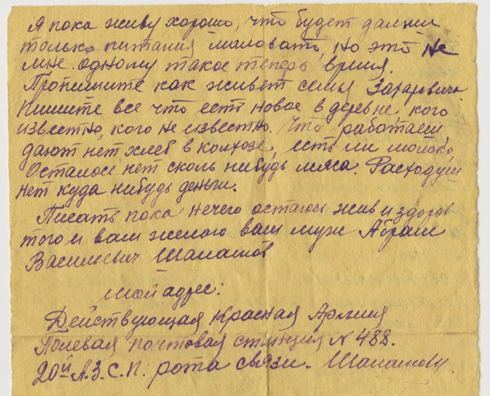 Я пока живу хорошо, что будет далши
только питания маловато, но это не
мне одному такое теперь время
Пропишите как живет семья Захаровича
Пишите все что ест новое в деревне, кого
известно, кого не известно. Что работаеш
дают нет хлеб в колхозе, есть ли молоко
Осталос нет сколь нибудь мяса. Расходуш
нет куда нибудь денги.
Писать пока нечего остаюс жив и здоров
того и вам желаю ваш муж Абрам
Василиевич Шаматов
мой адрес:
Действующая Красная Армия
Полевая почтовая станция N 488.
20й А.З.С.П. рота связи. Шаматову.